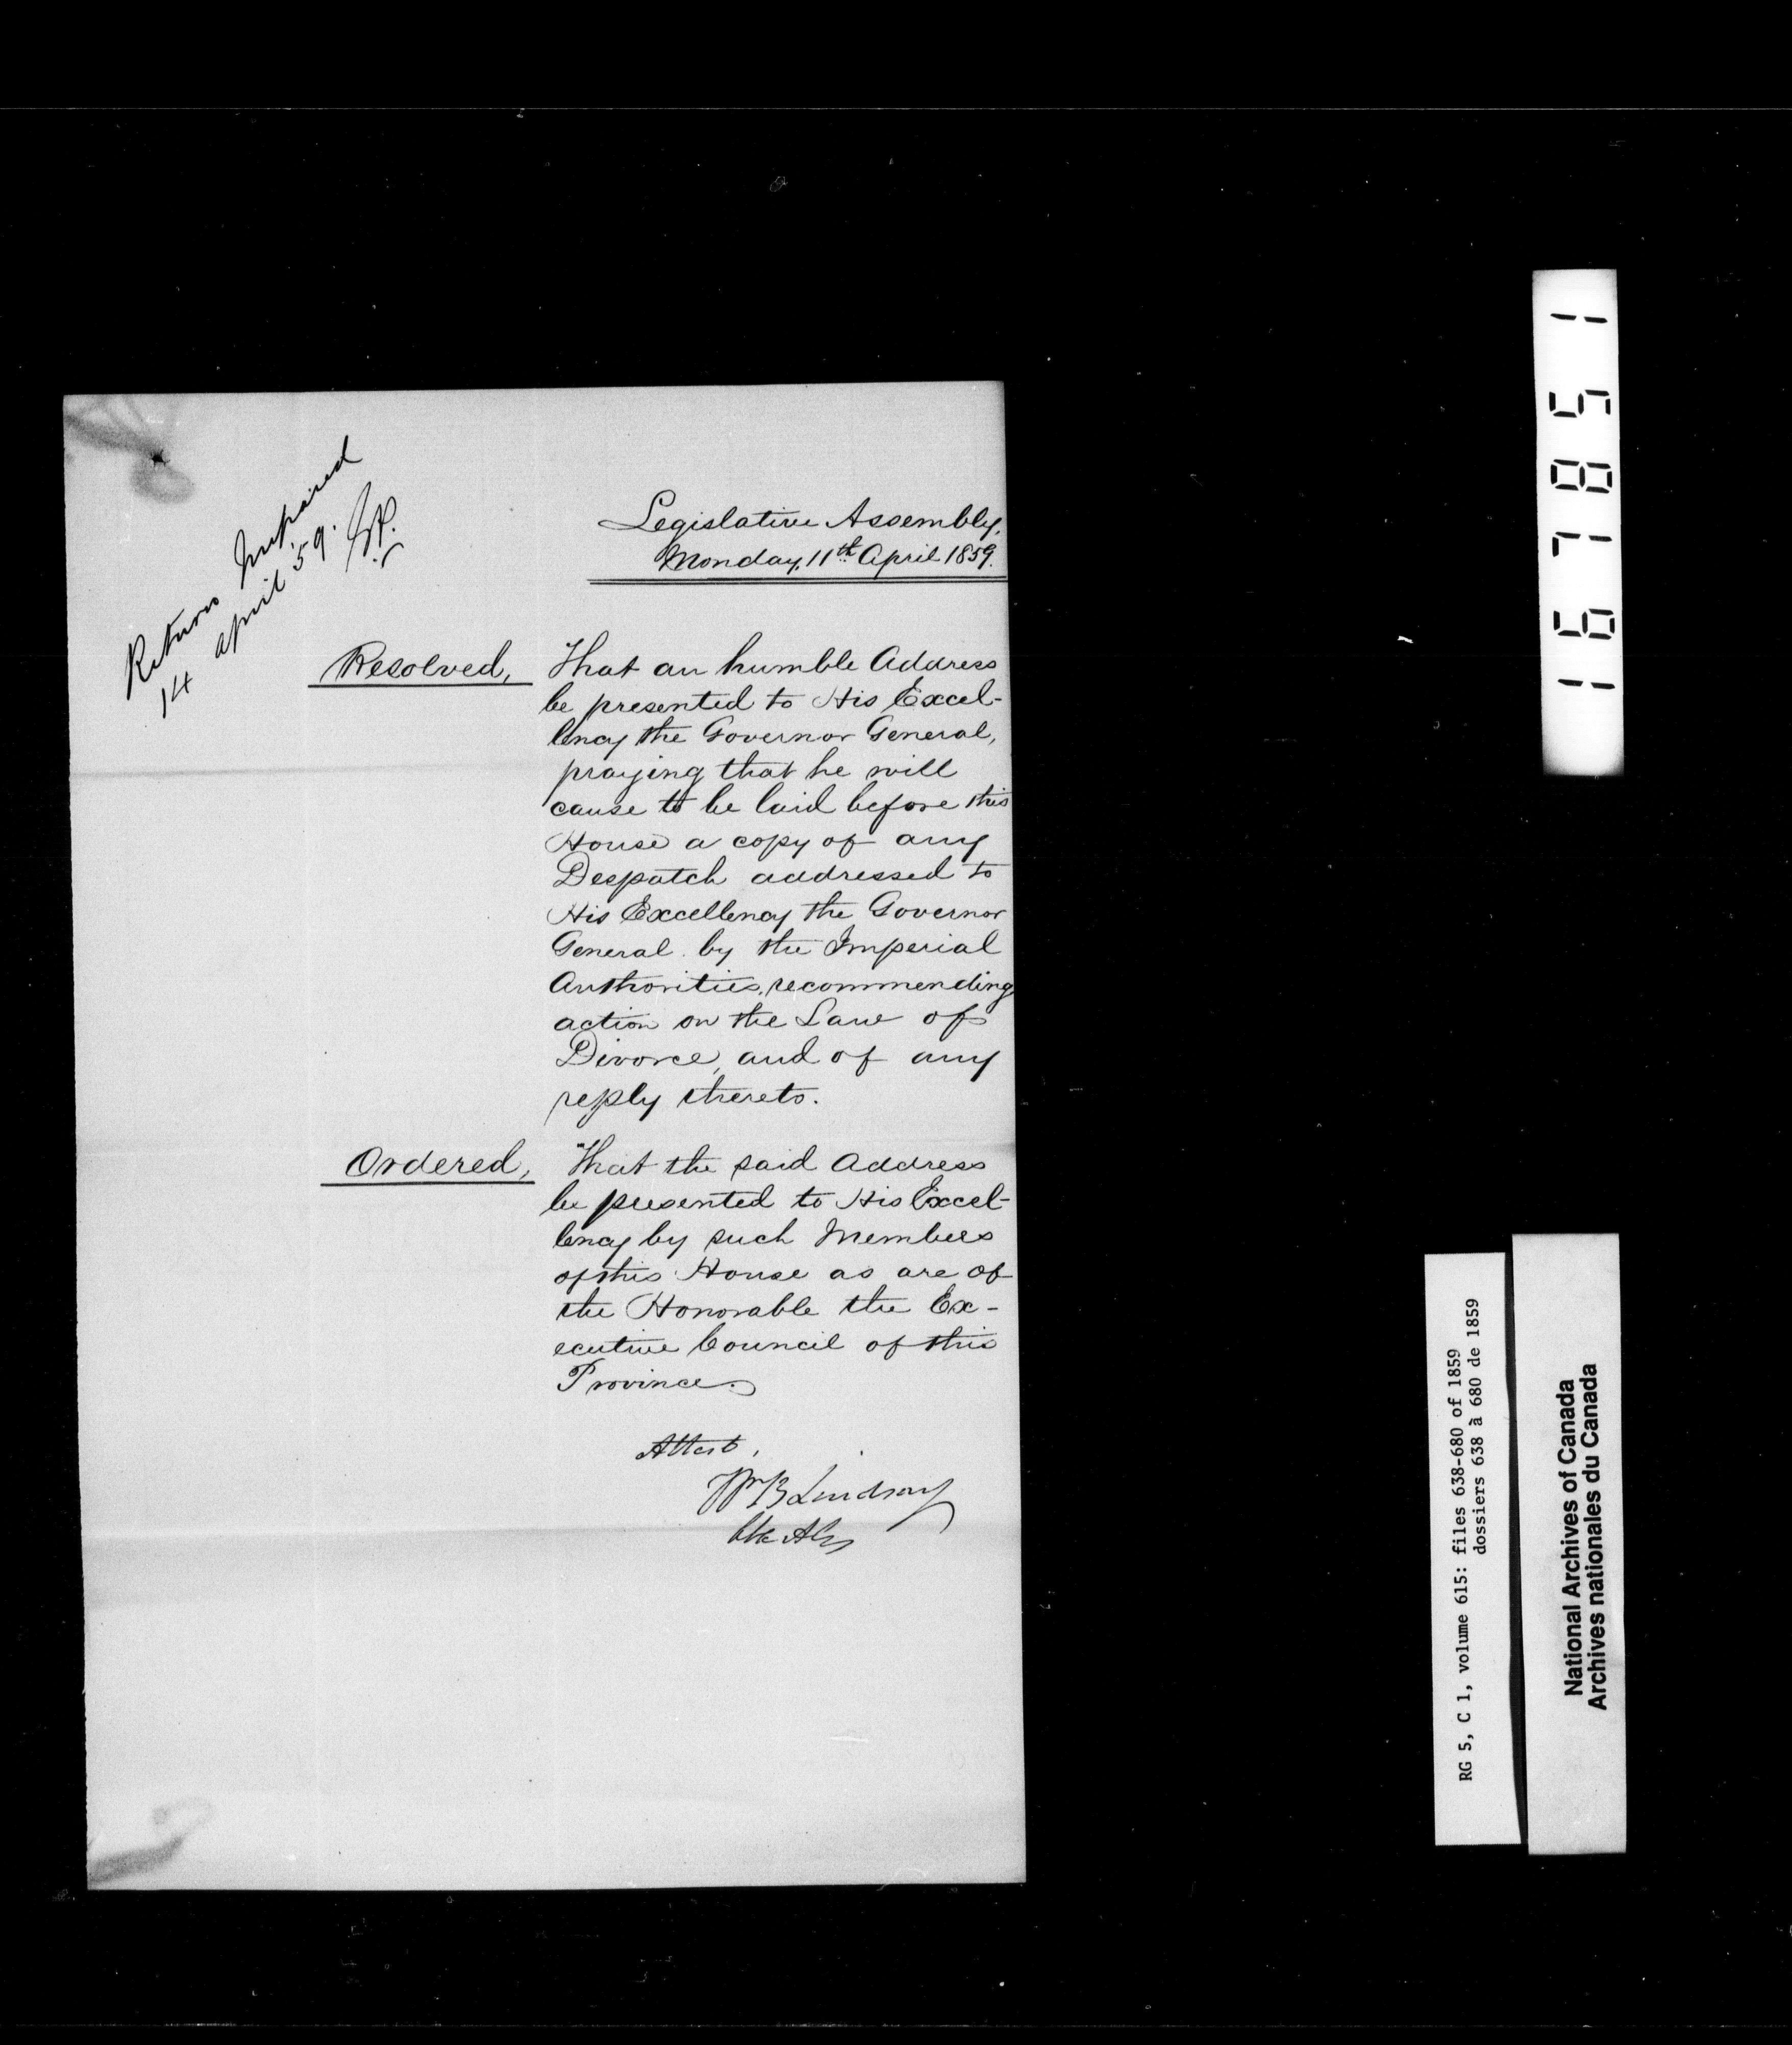 Return prepared
14 april '59.
Legislative Assembly,
Monday, 11th April 1859.
Resolved, That an humble Address
be presented to His Excel-
lency the Governor General,
praying that he will
cause to be laid before this
House a copy of any
Despatch addressed to
His Excellency the Governor
General by the Imperial
Authorities, recommending
action on the Law of
Divorce, and of any
reply thereto.
Ordered, That the said Address
be presented to His Excel-
lency by such Members
of this House as are of
the Honorable the Ex-
ecutive Council of this
Province.
Attest,
Wm B Lindsay
Clk Assy
167851
RG 5, C 1, volume 615: files 638-680 of 1859
dossiers 638 à 680 de 1859
National Archives of Canada
Archives nationales du Canada